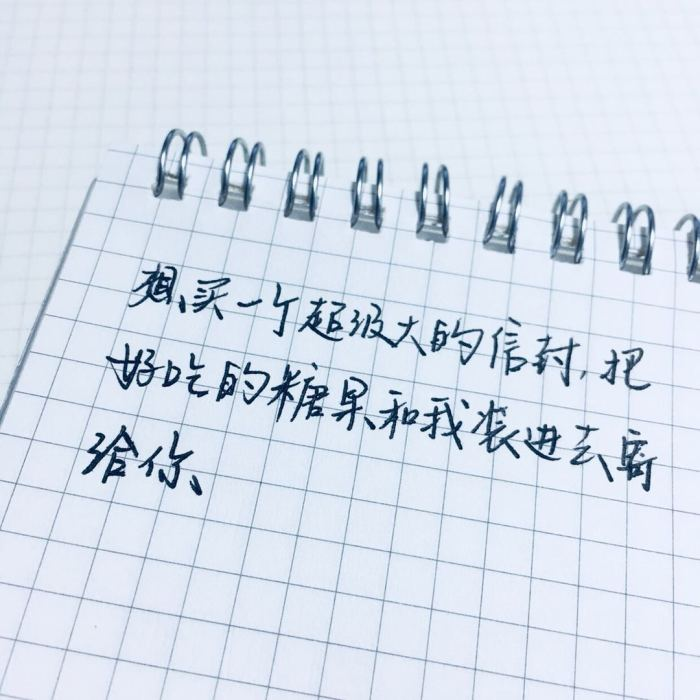 想买一个超级大的信封,把
好吃的糖果和我装进去寄
给你